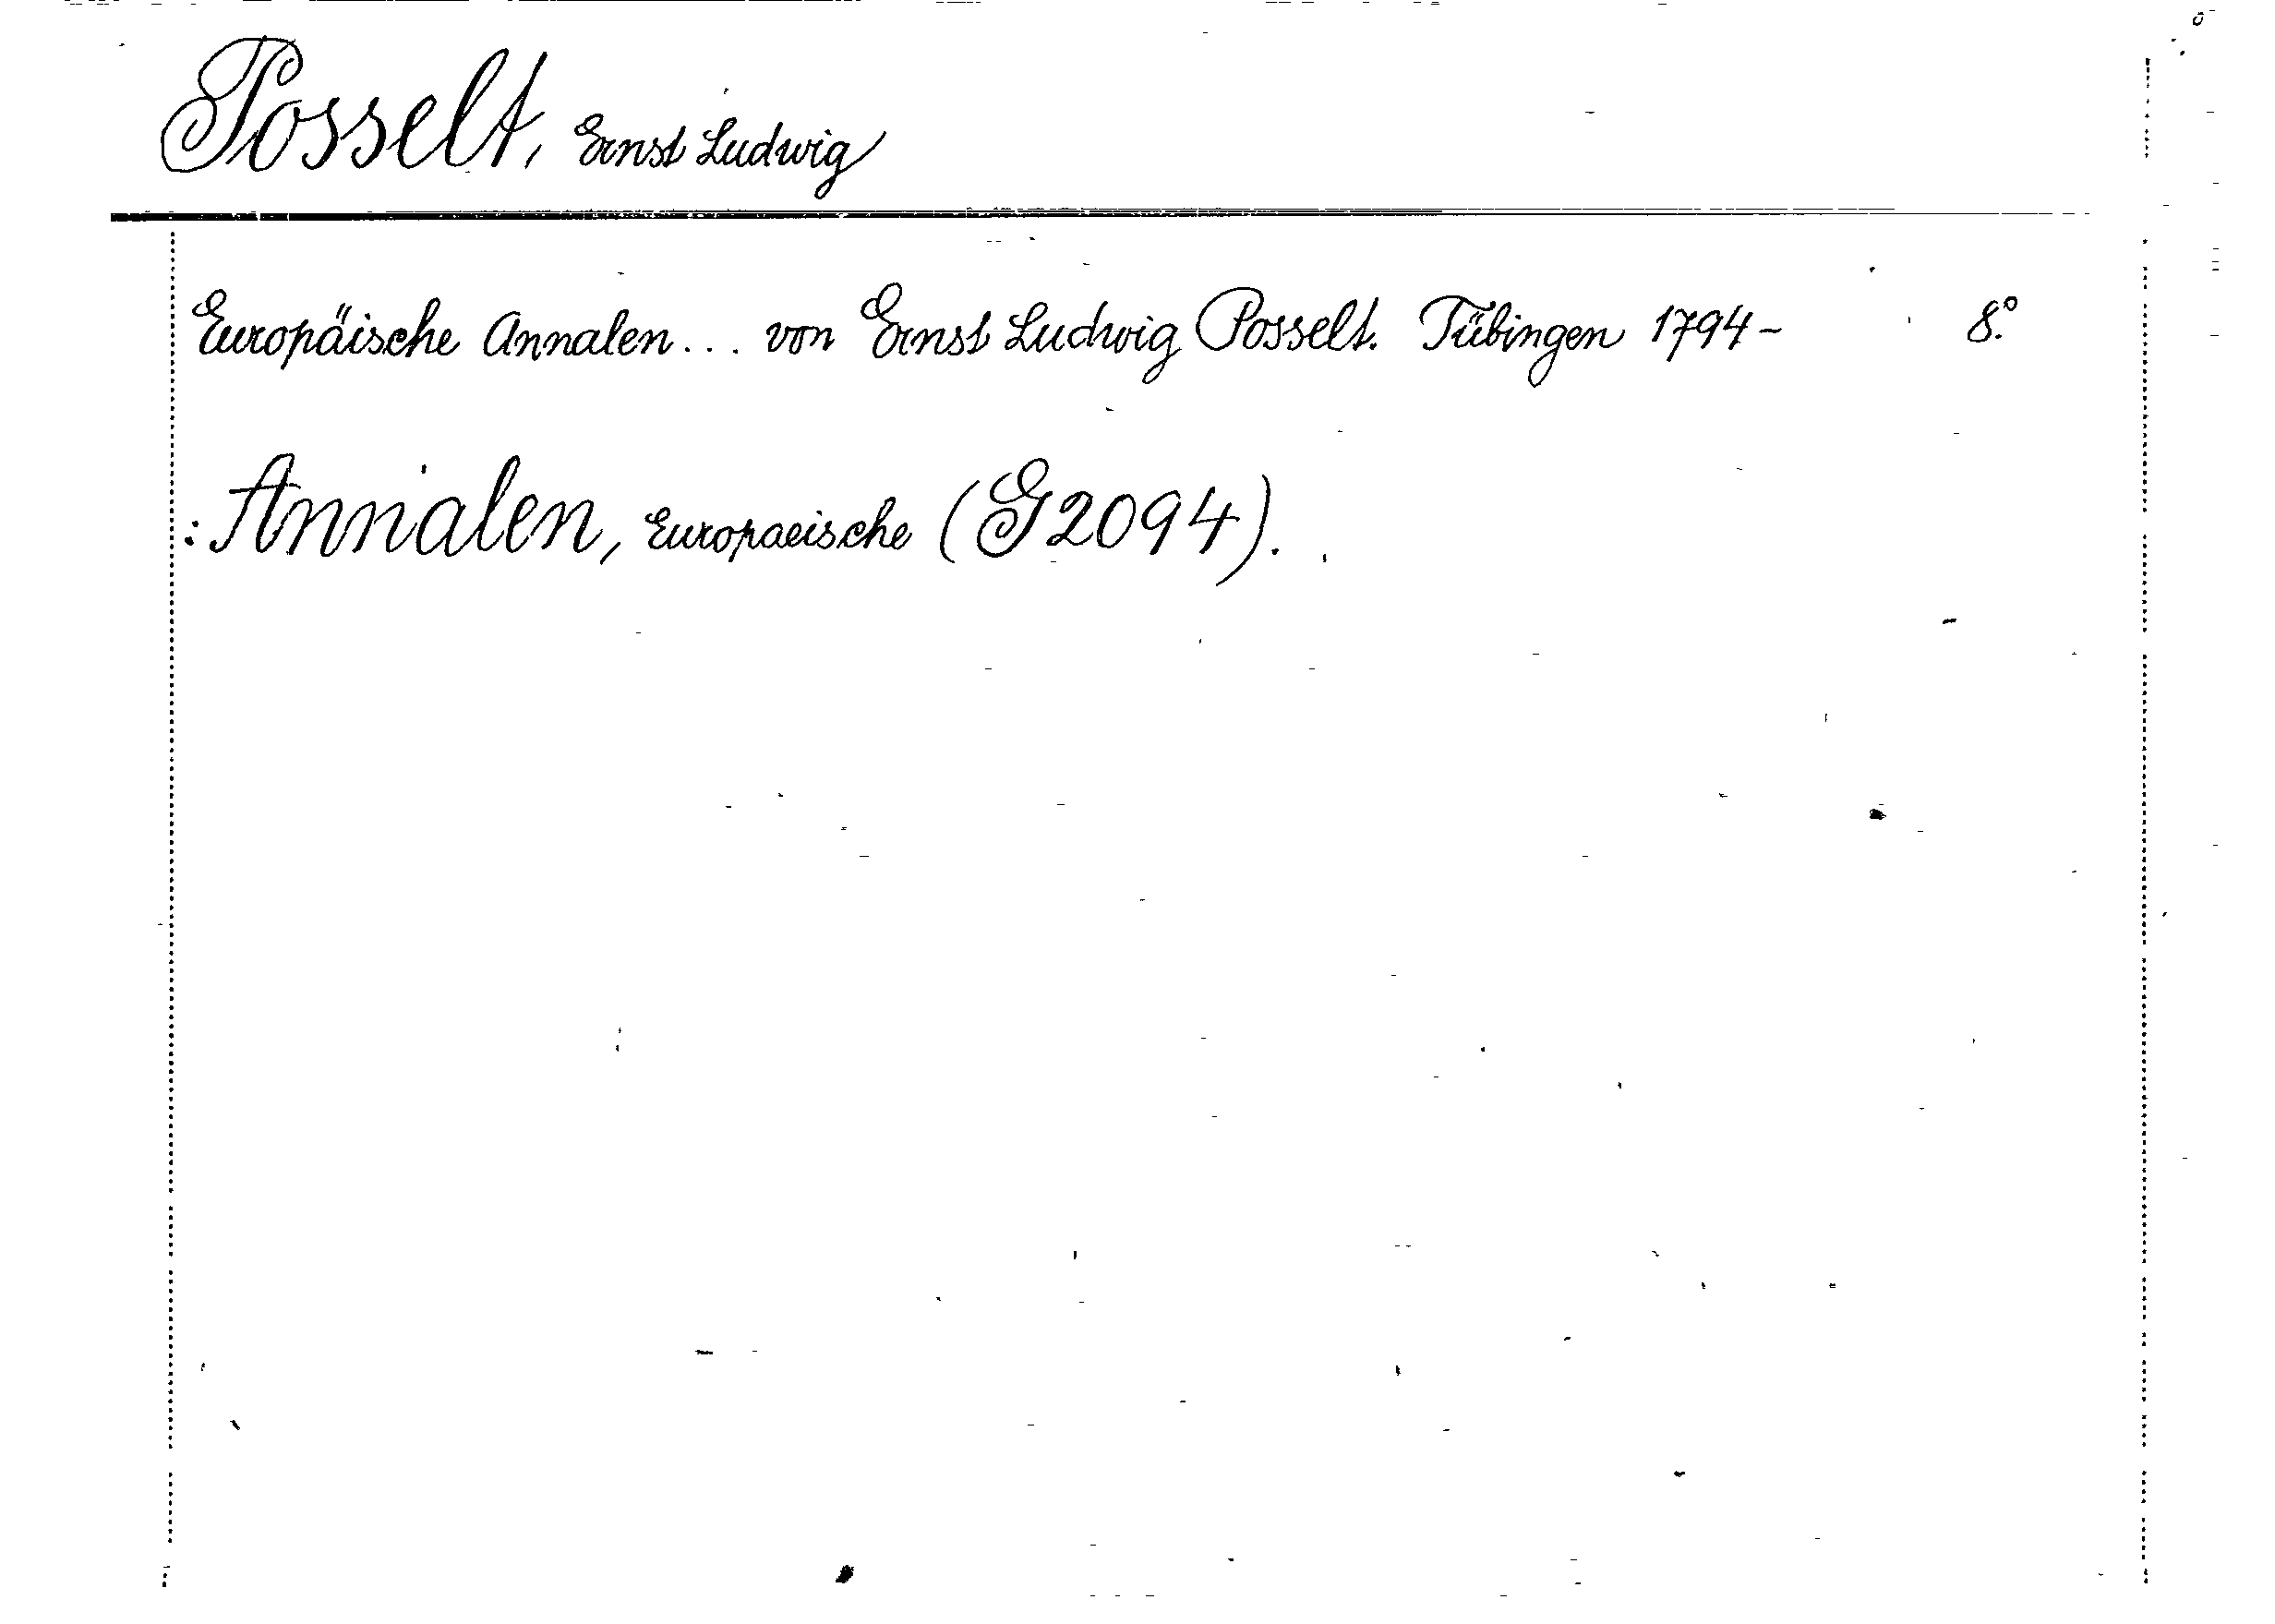 Posselt, Ernst Ludwig
Europäische Annalen... von Ernst Ludwig Posselt. Tübingen 1794- 8.°
: Annalen, Europaeische (G2094).